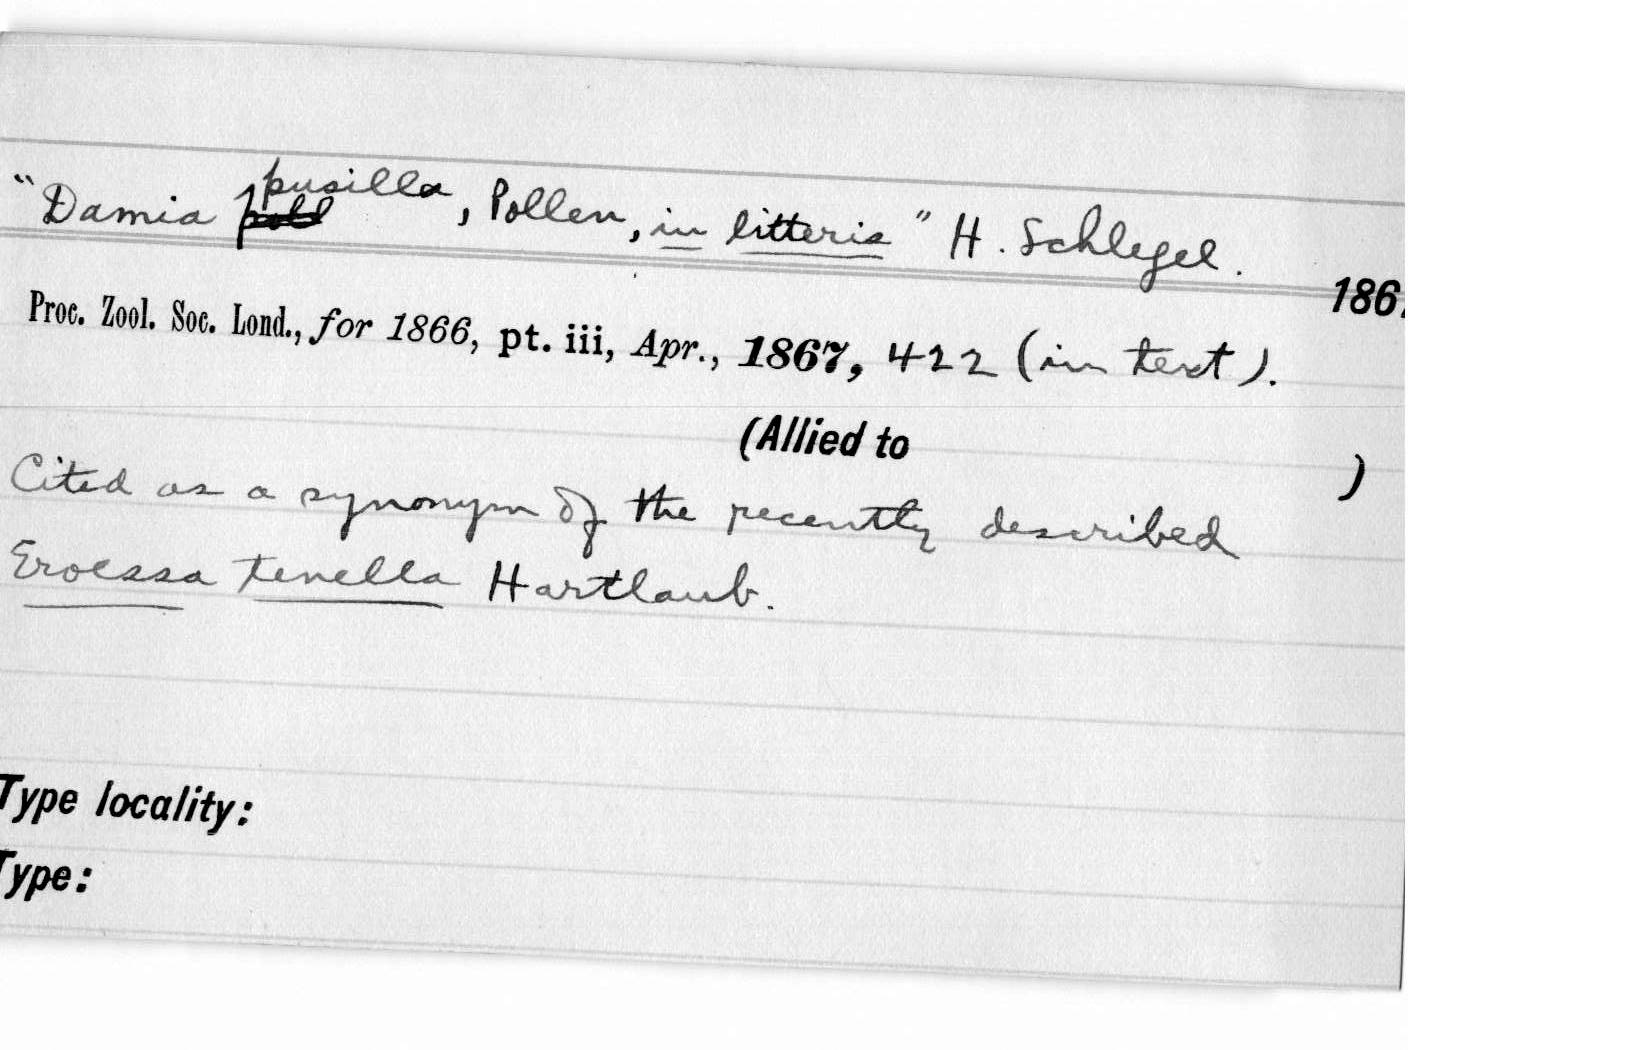 "Damia pusilla, Pollen, in litteris" H. Schlegel.
186
Proc. Zool. Soc. Lond., for 1866, pt. iii, Apr., 1867, 422 (in text).
(Allied to )
Cited as a synonym of the recently described
Eroessa tenella Hartlaub.
Type locality:
Type: